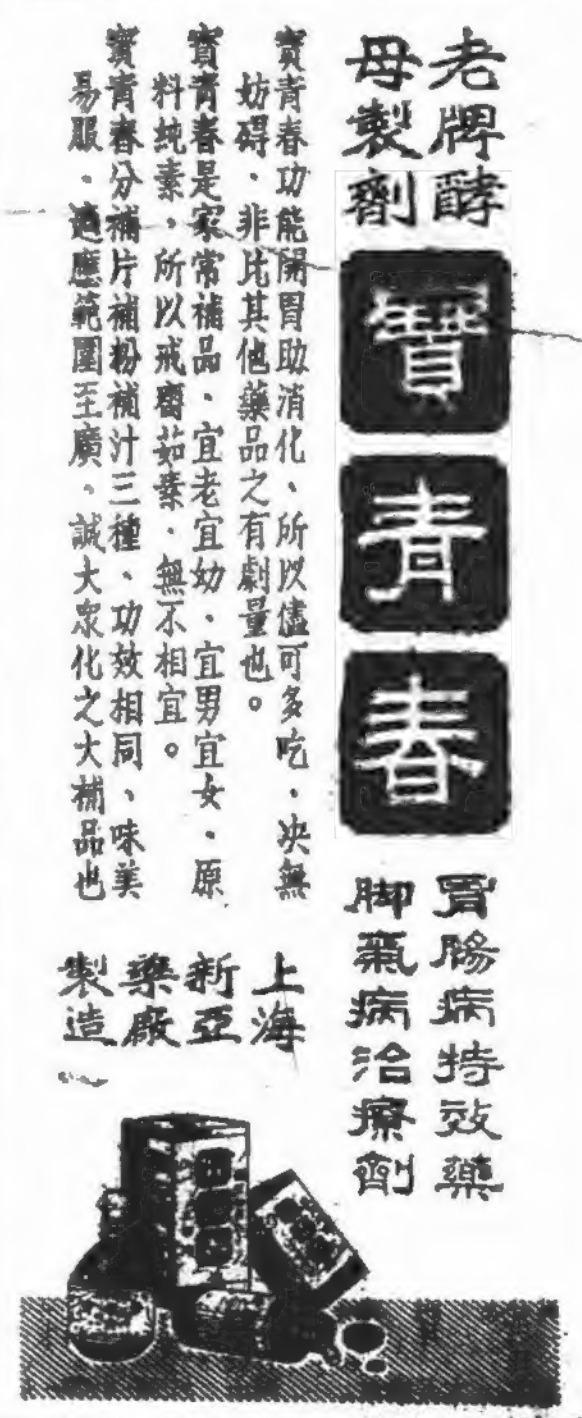 老牌酵
母製劑
寶青春
胃腸病特效藥
脚氣病治療劑
寶青春功能開胃助消化、所以儘可多吃、决無
妨碍、非比其他藥品之有劇量也。
寶青春是家常補品、宜老宜幼、宜男宜女、原
料純素、所以戒齋茹素、無不相宜。
寶青春分補片補粉補汁三種、功效相同、味美
易服、適應範圍至廣、誠大衆化之大補品也
上海
新亞
藥廠
製造